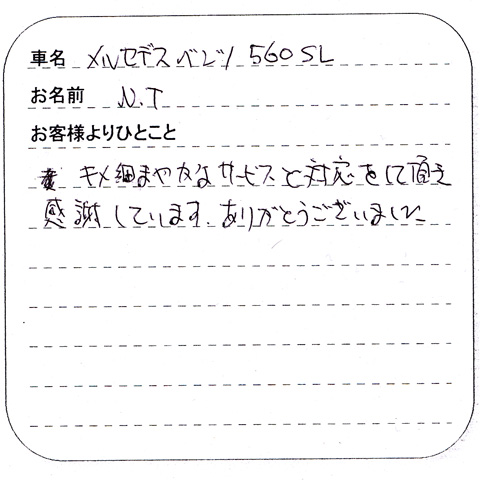 車名 メルセデスベンツ 560SL
お名前 N.T
お客様よりひとこと
キメ細まやかなサービスと対応をして頂き
感謝しています。ありがとうございました